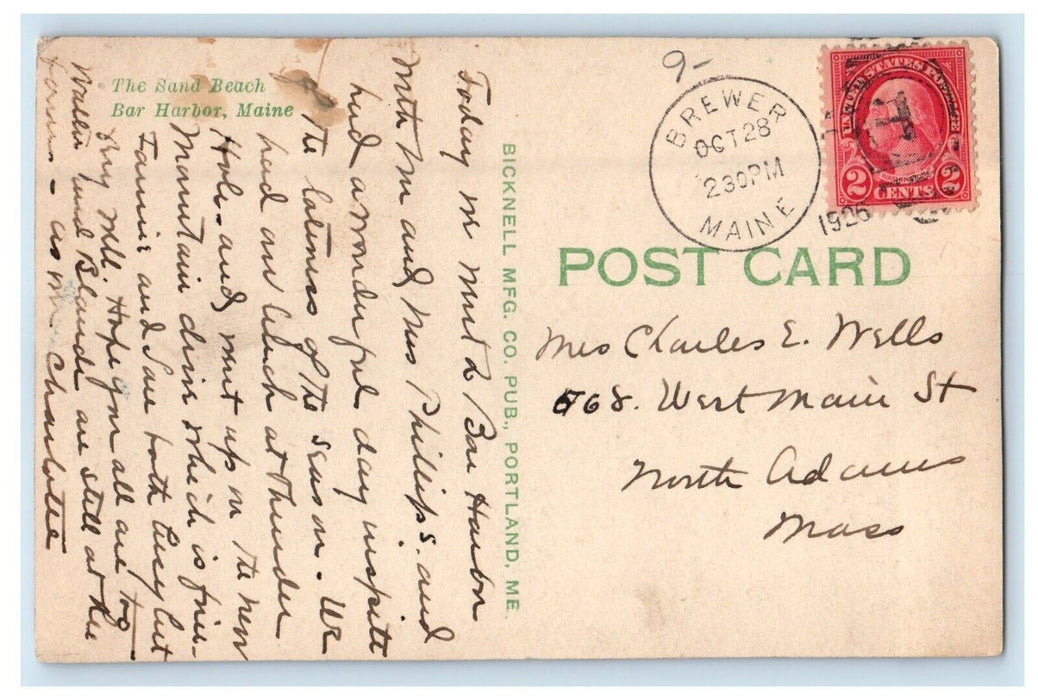 The Sand Beach
Bar Harbor, Maine
Today we went to Bar Harbor
with Mr and Mrs Phillips. and
had a wonderful day inspite
the lateness of the season. We
had our lunch at Thunder
Hole. and went up on the new
Mountain drive which is fine.
Fannie and Sue both busy but
very well. Hope you all are too
Walter and Blanche are still at the
farm - as me Charlotte
BICKNELL MFG. CO. PUB., PORTLAND, ME.
9-
BREWER
OCT 28
2 30 PM
MAINE
1926
UNITED STATES POSTAGE
WASHINGTON
2 CENTS 2
POST CARD
Mrs Charles E. Wells
768. West Main St
North Adams
Mass